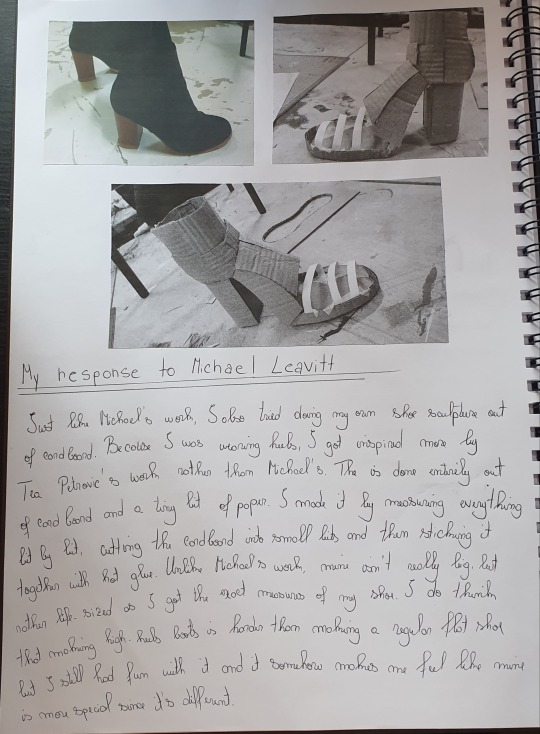 My response to Michael Leavitt
Just like Michael's work, I also tried doing my own shoe sculpture out
of cardboard. Because I was wearing heels, I got inspired more by
Tea Petrovic's work rather than Michael's. The is done entirely out
of cardboard and a tiny bit of paper. I made it by measuring everything
bit by bit, cutting the cardboard into small bits and then sticking it
together with hot glue. Unlike Michael's work, mine isn't really big, but
rather life-sized as I got the exact measures of my shoe. I do think
that making high-heels boots is harder than making a regular flat shoe
but I still had fun with it and it somehow makes me feel like mine
is more special since it's different.